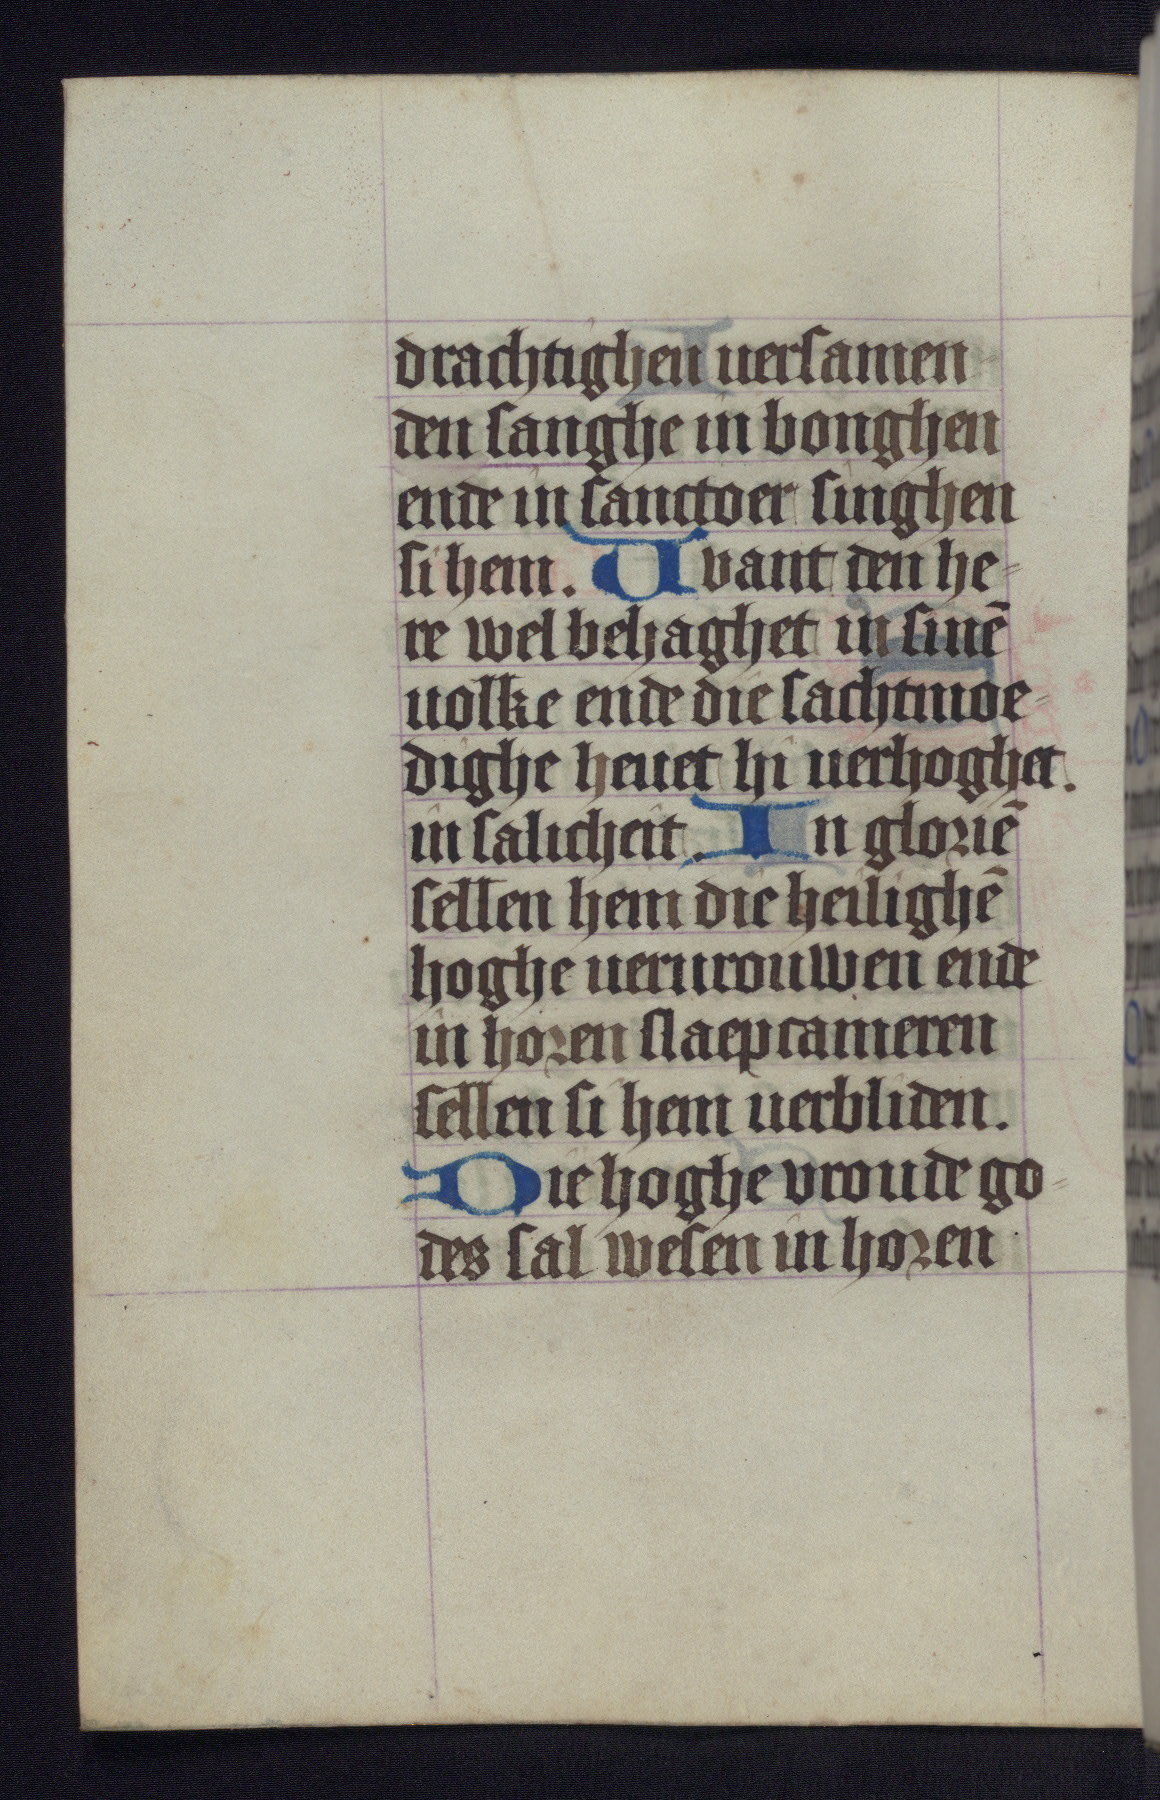 drachtighen uersamen
den sanghe in bonghen
ende in sanctoer singhen
si hem. Uvant den he=
re wel behaghet in sinē
uolke ende die sachtmoe=
dighe heuet hi uerhoghet.
in salicheit. In gloriē
sellen hem die heilighē
hoghe uerurouwen ende
in horen slaepcameren
sellen si hem uerbliden.
Die hoghe vroude go=
des sal wesen in horen